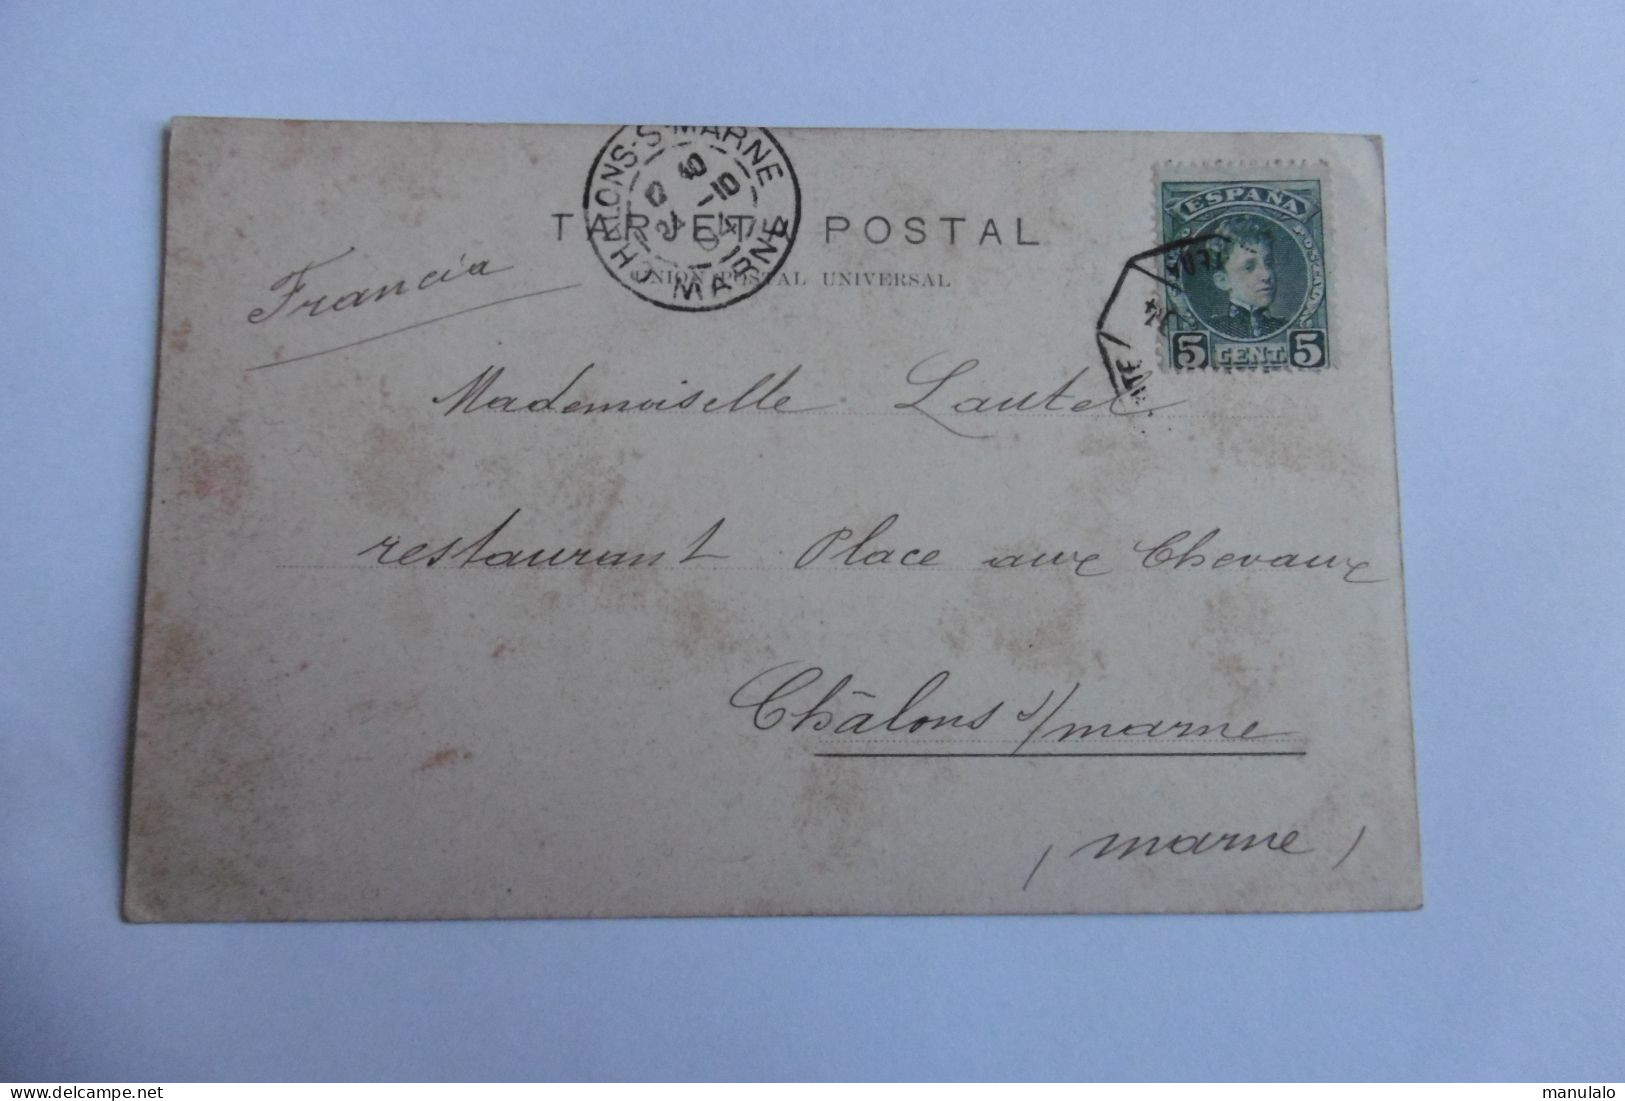 CHALONS-S-MARNE
MARNE
TARJETA POSTAL
UNION POSTAL UNIVERSAL
ESPAÑA
5 CENT. 5
Francia
Mademoiselle Lautel
restaurant Place aux Chevaux
Châlons s/ marne
(marne)
manulalo